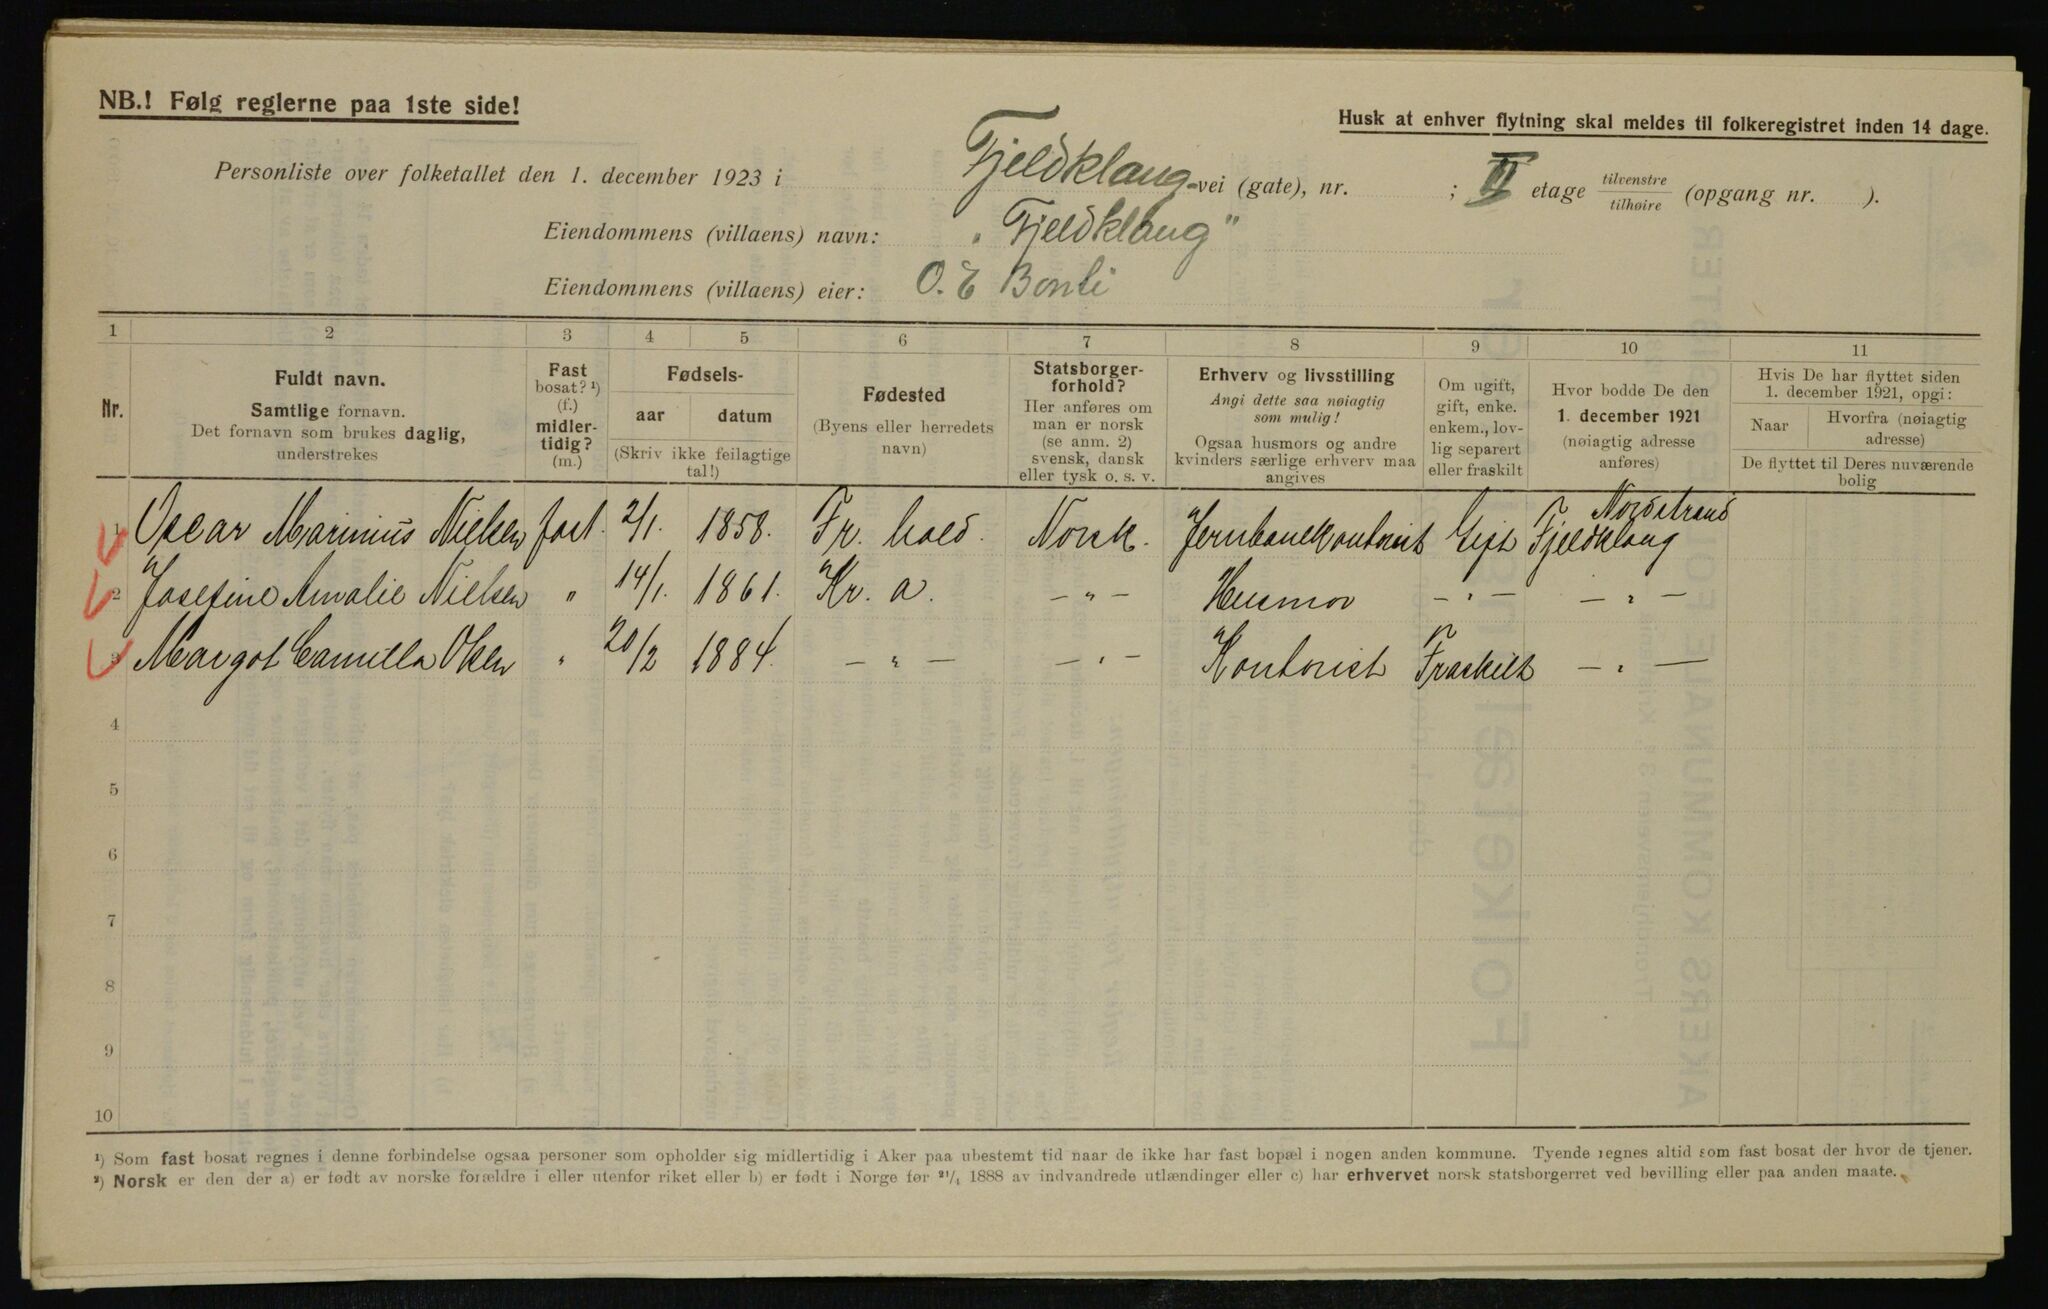 NB.! Følg reglerne paa 1ste side!
Husk at enhver flytning skal meldes til folkeregistret inden 14 dage.
Personliste over folketallet den 1. december 1923 i Fjeldklang-vei (gate), nr. ; II etage tilvenstre/tilhøire (opgang nr. ).
Eiendommens (villaens) navn: „Fjeldklang"
Eiendommens (villaens) eier: O. E Bonli
1 2 3 4 5 6 7 8 9 10 11
Nr.
Fuldt navn.
Samtlige fornavn.
Det fornavn som brukes daglig,
understrekes
Fast
bosat? ¹)
(f.)
midler-
tidig?
(m.)
Fødsels-
aar datum
(Skriv ikke feilagtige
tal!)
Fødested
(Byens eller herredets
navn)
Statsborger-
forhold?
Her anføres om
man er norsk
(se anm. 2)
svensk, dansk
eller tysk o. s. v.
Erhverv og livsstilling
Angi dette saa nøiagtig
som mulig!
Ogsaa husmors og andre
kvinders særlige erhverv maa
angives
Om ugift,
gift, enke.
enkem., lov-
lig separert
eller fraskilt
Hvor bodde De den
1. december 1921
(nøiagtig adresse
anføres)
Hvis De har flyttet siden
1. december 1921, opgi:
Naar Hvorfra (nøiagtig
adresse)
De flyttet til Deres nuværende
bolig
Nordstrand
1 Oscar Marinius Nielsen fast. 2/1. 1858. Fr. hald. Norsk. Jernbanekontorist Gift Fjeldklang
2 Josefine Amalie Nielsen " 14/1. 1861. Kr. a. — " — Husmor — " — — " —
3 Margot Camilla Olsen " 20/2 1884. — " — — " — Kontorist Fraskilt — " —
4
5
6
7
8
9
10
¹) Som fast bosat regnes i denne forbindelse ogsaa personer som opholder sig midlertidig i Aker paa ubestemt tid naar de ikke har fast bopæl i nogen anden kommune. Tyende regnes altid som fast bosat der hvor de tjener.
²) Norsk er den der a) er født av norske forældre i eller utenfor riket eller b) er født i Norge før ²¹/₄ 1888 av indvandrede utlændinger eller c) har erhvervet norsk statsborgerret ved bevilling eller paa anden maate.